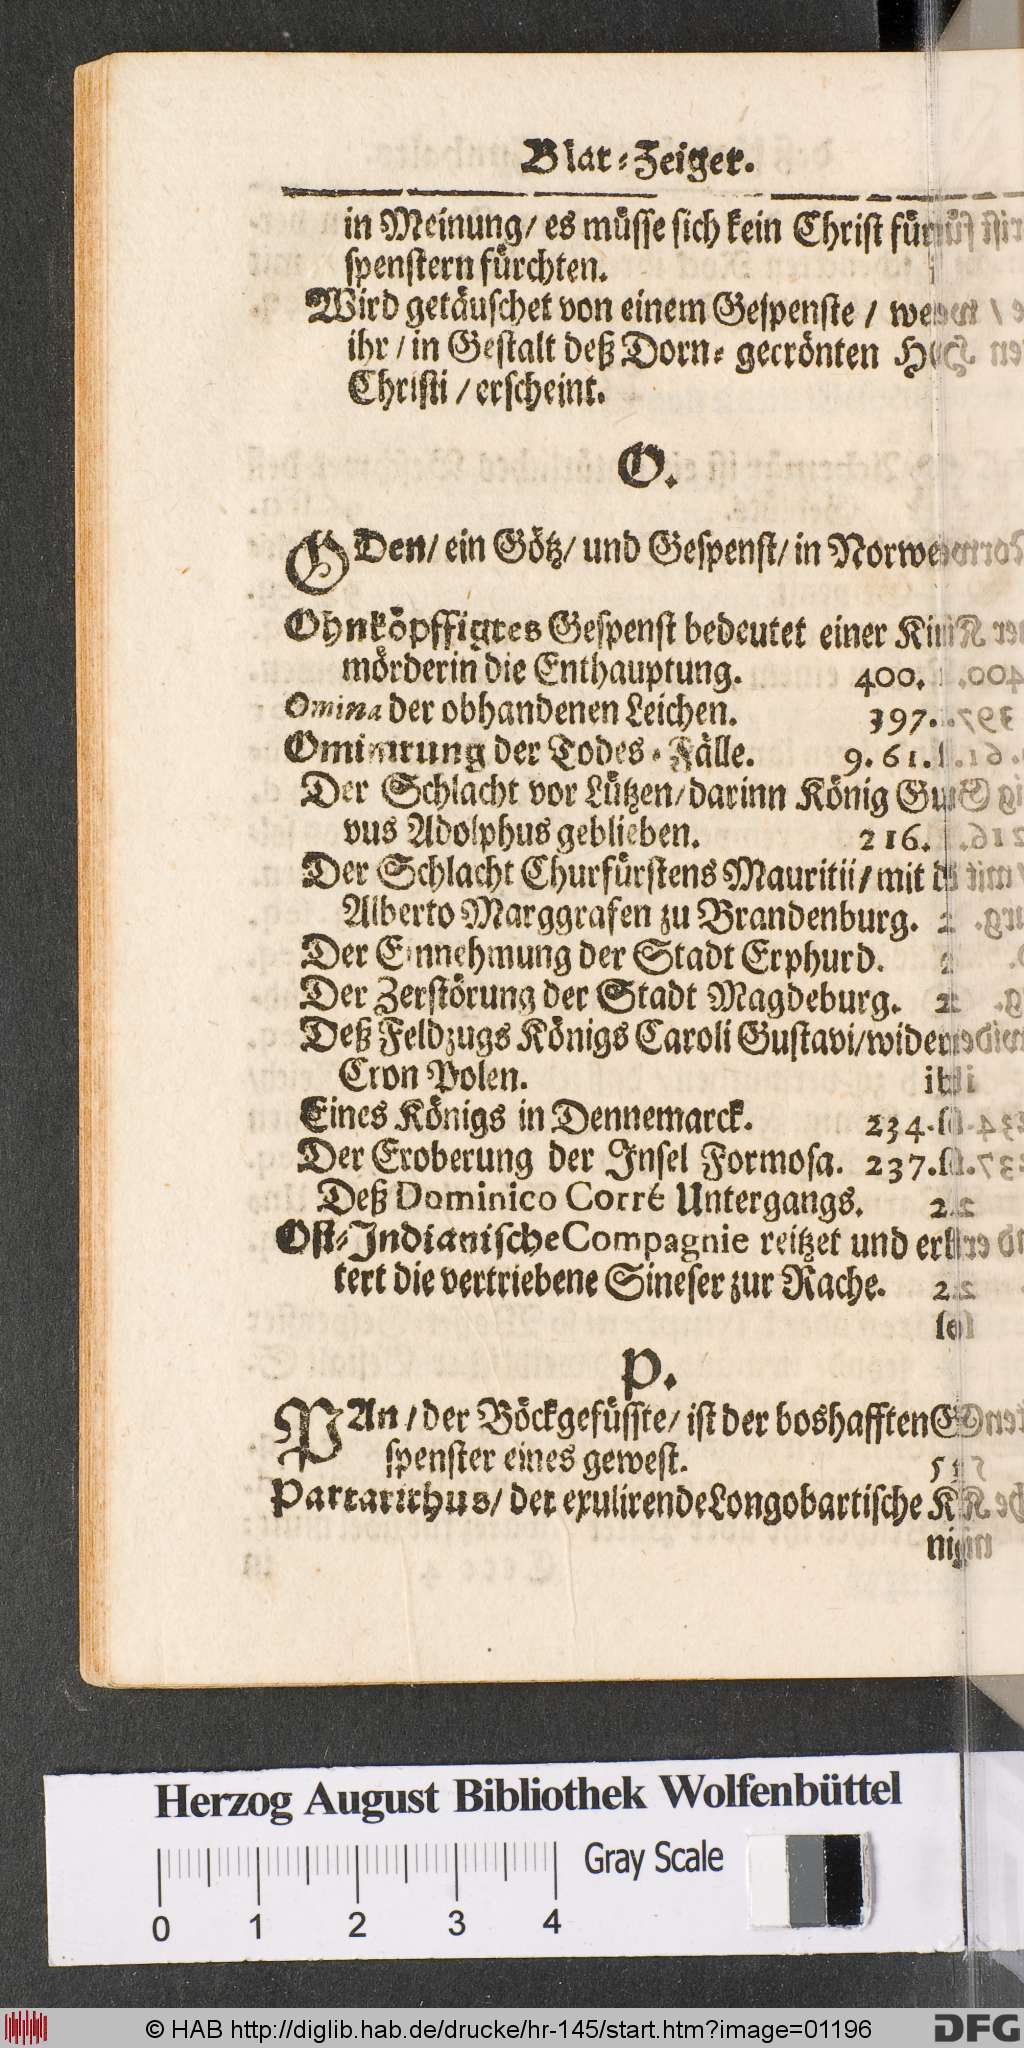 Blat-Zeiger.
in Meinung/ es müsse sich kein Christ für
spenstern fürchten.
Wird getäuschet von einem Gespenste /
ihr / in Gestalt deß Dorn- gecrönten
Christi / erscheint.
O.
ODen/ ein Götz/ und Gespenst/ in
Ohnköpffigtes Gespenst bedeutet einer
mörderin die Enthauptung. 400.
Omina der obhandenen Leichen. 397.
Ominirung der Todes-Fälle. 9. 61.
Der Schlacht vor Lützen/ darinn König
vus Adolphus geblieben. 216.
Der Schlacht Churfürstens Mauritii/ mit
Alberto Marggrafen zu Brandenburg.
Der Einnehmung der Stadt Erphurd.
Der Zerstörung der Stadt Magdeburg.
Deß Feldzugs Königs Caroli Gustavi/ wider
Cron Polen.
Eines Königs in Dennemarck. 234.
Der Eroberung der Insel Formosa. 237.
Deß Dominico Corré Untergangs.
Ost-Indianische Compagnie reitzet und
tert die vertriebene Sineser zur Rache.
P.
PAn / der Böckgefüsste/ ist der boshafften
spenster eines gewest.
Partarithus/ der exulirende Longobartische
Herzog August Bibliothek Wolfenbüttel
Gray Scale
0 1 2 3 4
© HAB http://diglib.hab.de/drucke/hr-145/start.htm?image=01196
DFG